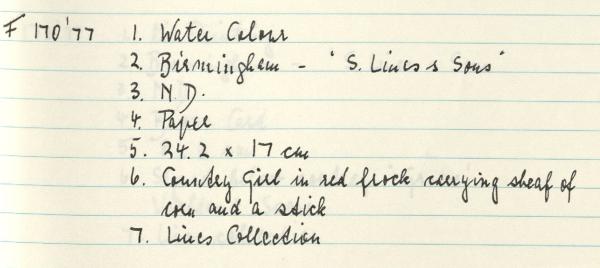 F 170'77 1. Water Colour
2. Birmingham - 'S. Lines & Sons'
3. N.D.
4. Paper
5. 24.2 x 17 cm
6. Country Girl in red frock carrying sheaf of
corn and a stick
7. Lines Collection